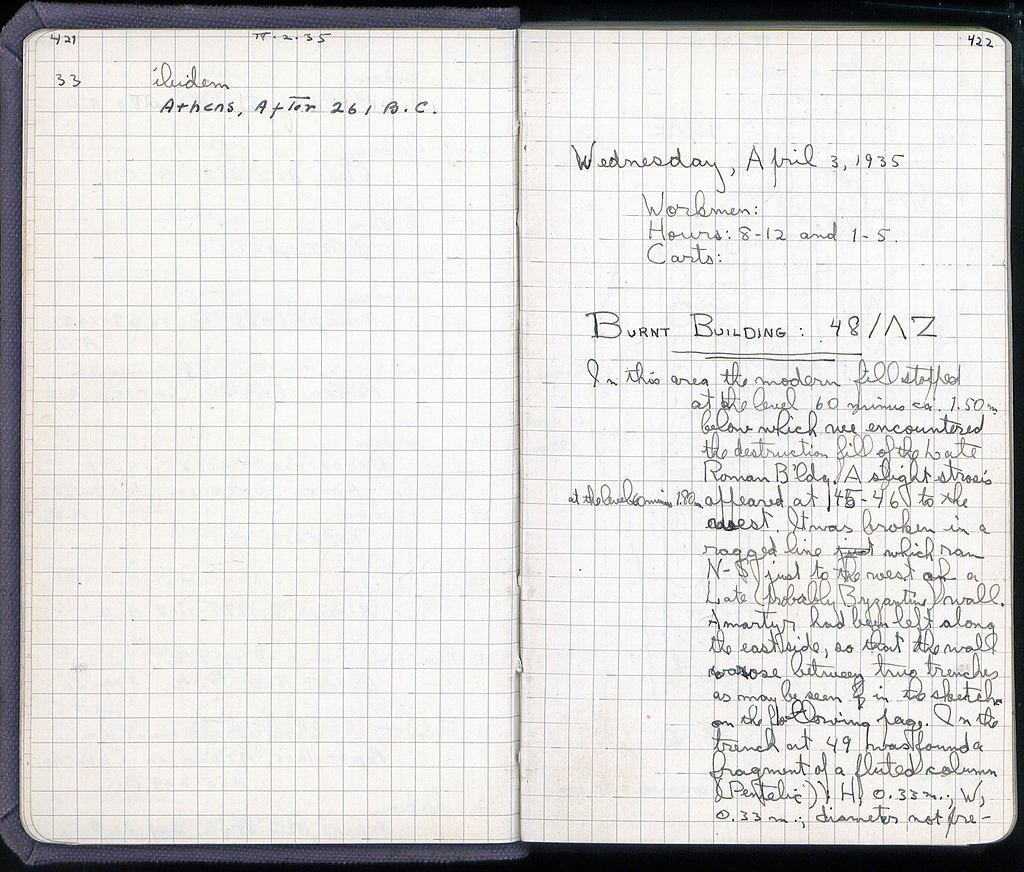 421
II·2·35
33 ibidem
Athens, After 261 B.C.
422
Wednesday, April 3, 1935
Workmen:
Hours: 8-12 and 1-5.
Carts:
BURNT BUILDING: 48/ΛΖ
In this area the modern fill stopped
at the level 60 minus ca. 1.50 m
below which we encountered
the destruction fill of the Late
Roman B'ldg. A slight strosis
at the level 60 minus 1.80 m appeared at 45-46 to the
west. It was broken in a
ragged line which ran
N-S just to the west of a
Late (probably Byzantine) wall.
A martyr had been left along
the east side, so that the wall
rose between two trenches
as may be seen in the sketch
on the following page. In the
trench at 49 was found a
fragment of a fluted column
(Pentelic); H, 0.33 m.; W,
0.33 m.; diameter not pre-